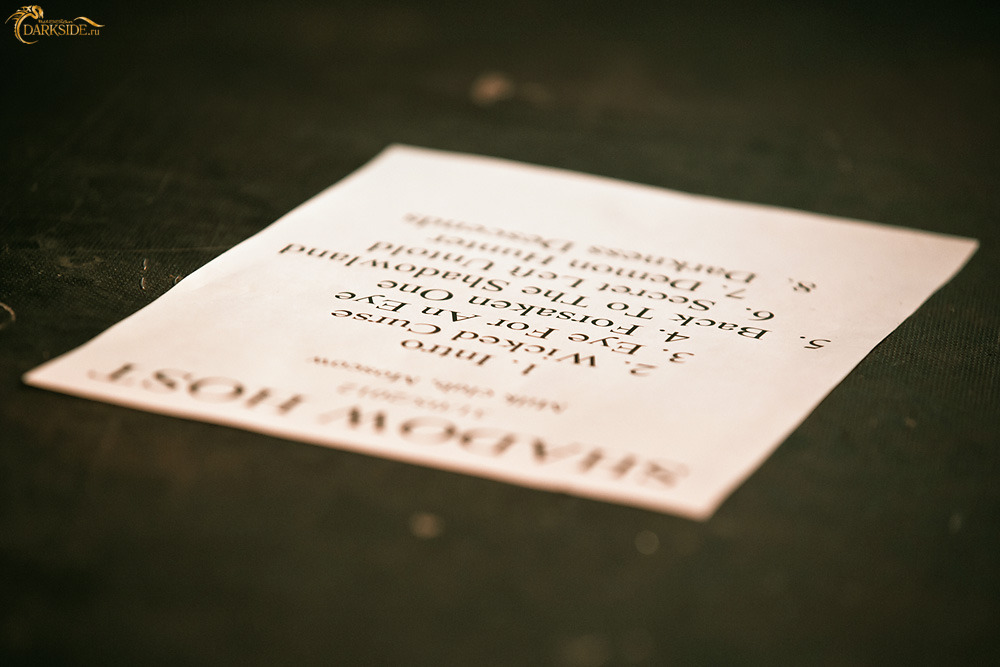 DARKSIDE.ru
SHADOW HOST
Milk club, Moscow
1. Intro
2. Wicked Curse
3. Eye For An Eye
4. Forsaken One
5. Back To The Shadowland
6. Secret Left Untold
7. Demon Hunter
8. Darkness Descends